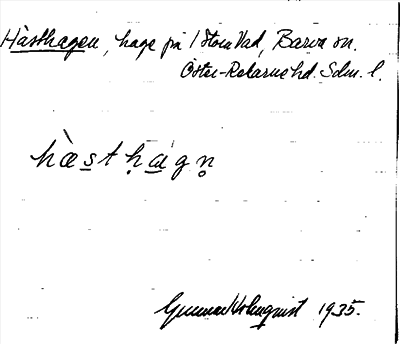 Hässthagen, hage på 1 Stora Vad, Barva sn.
Öster-Rekarne hd. Sdm. l.
hæ̀st hág n̥
Gunnar Holmquist 1935.